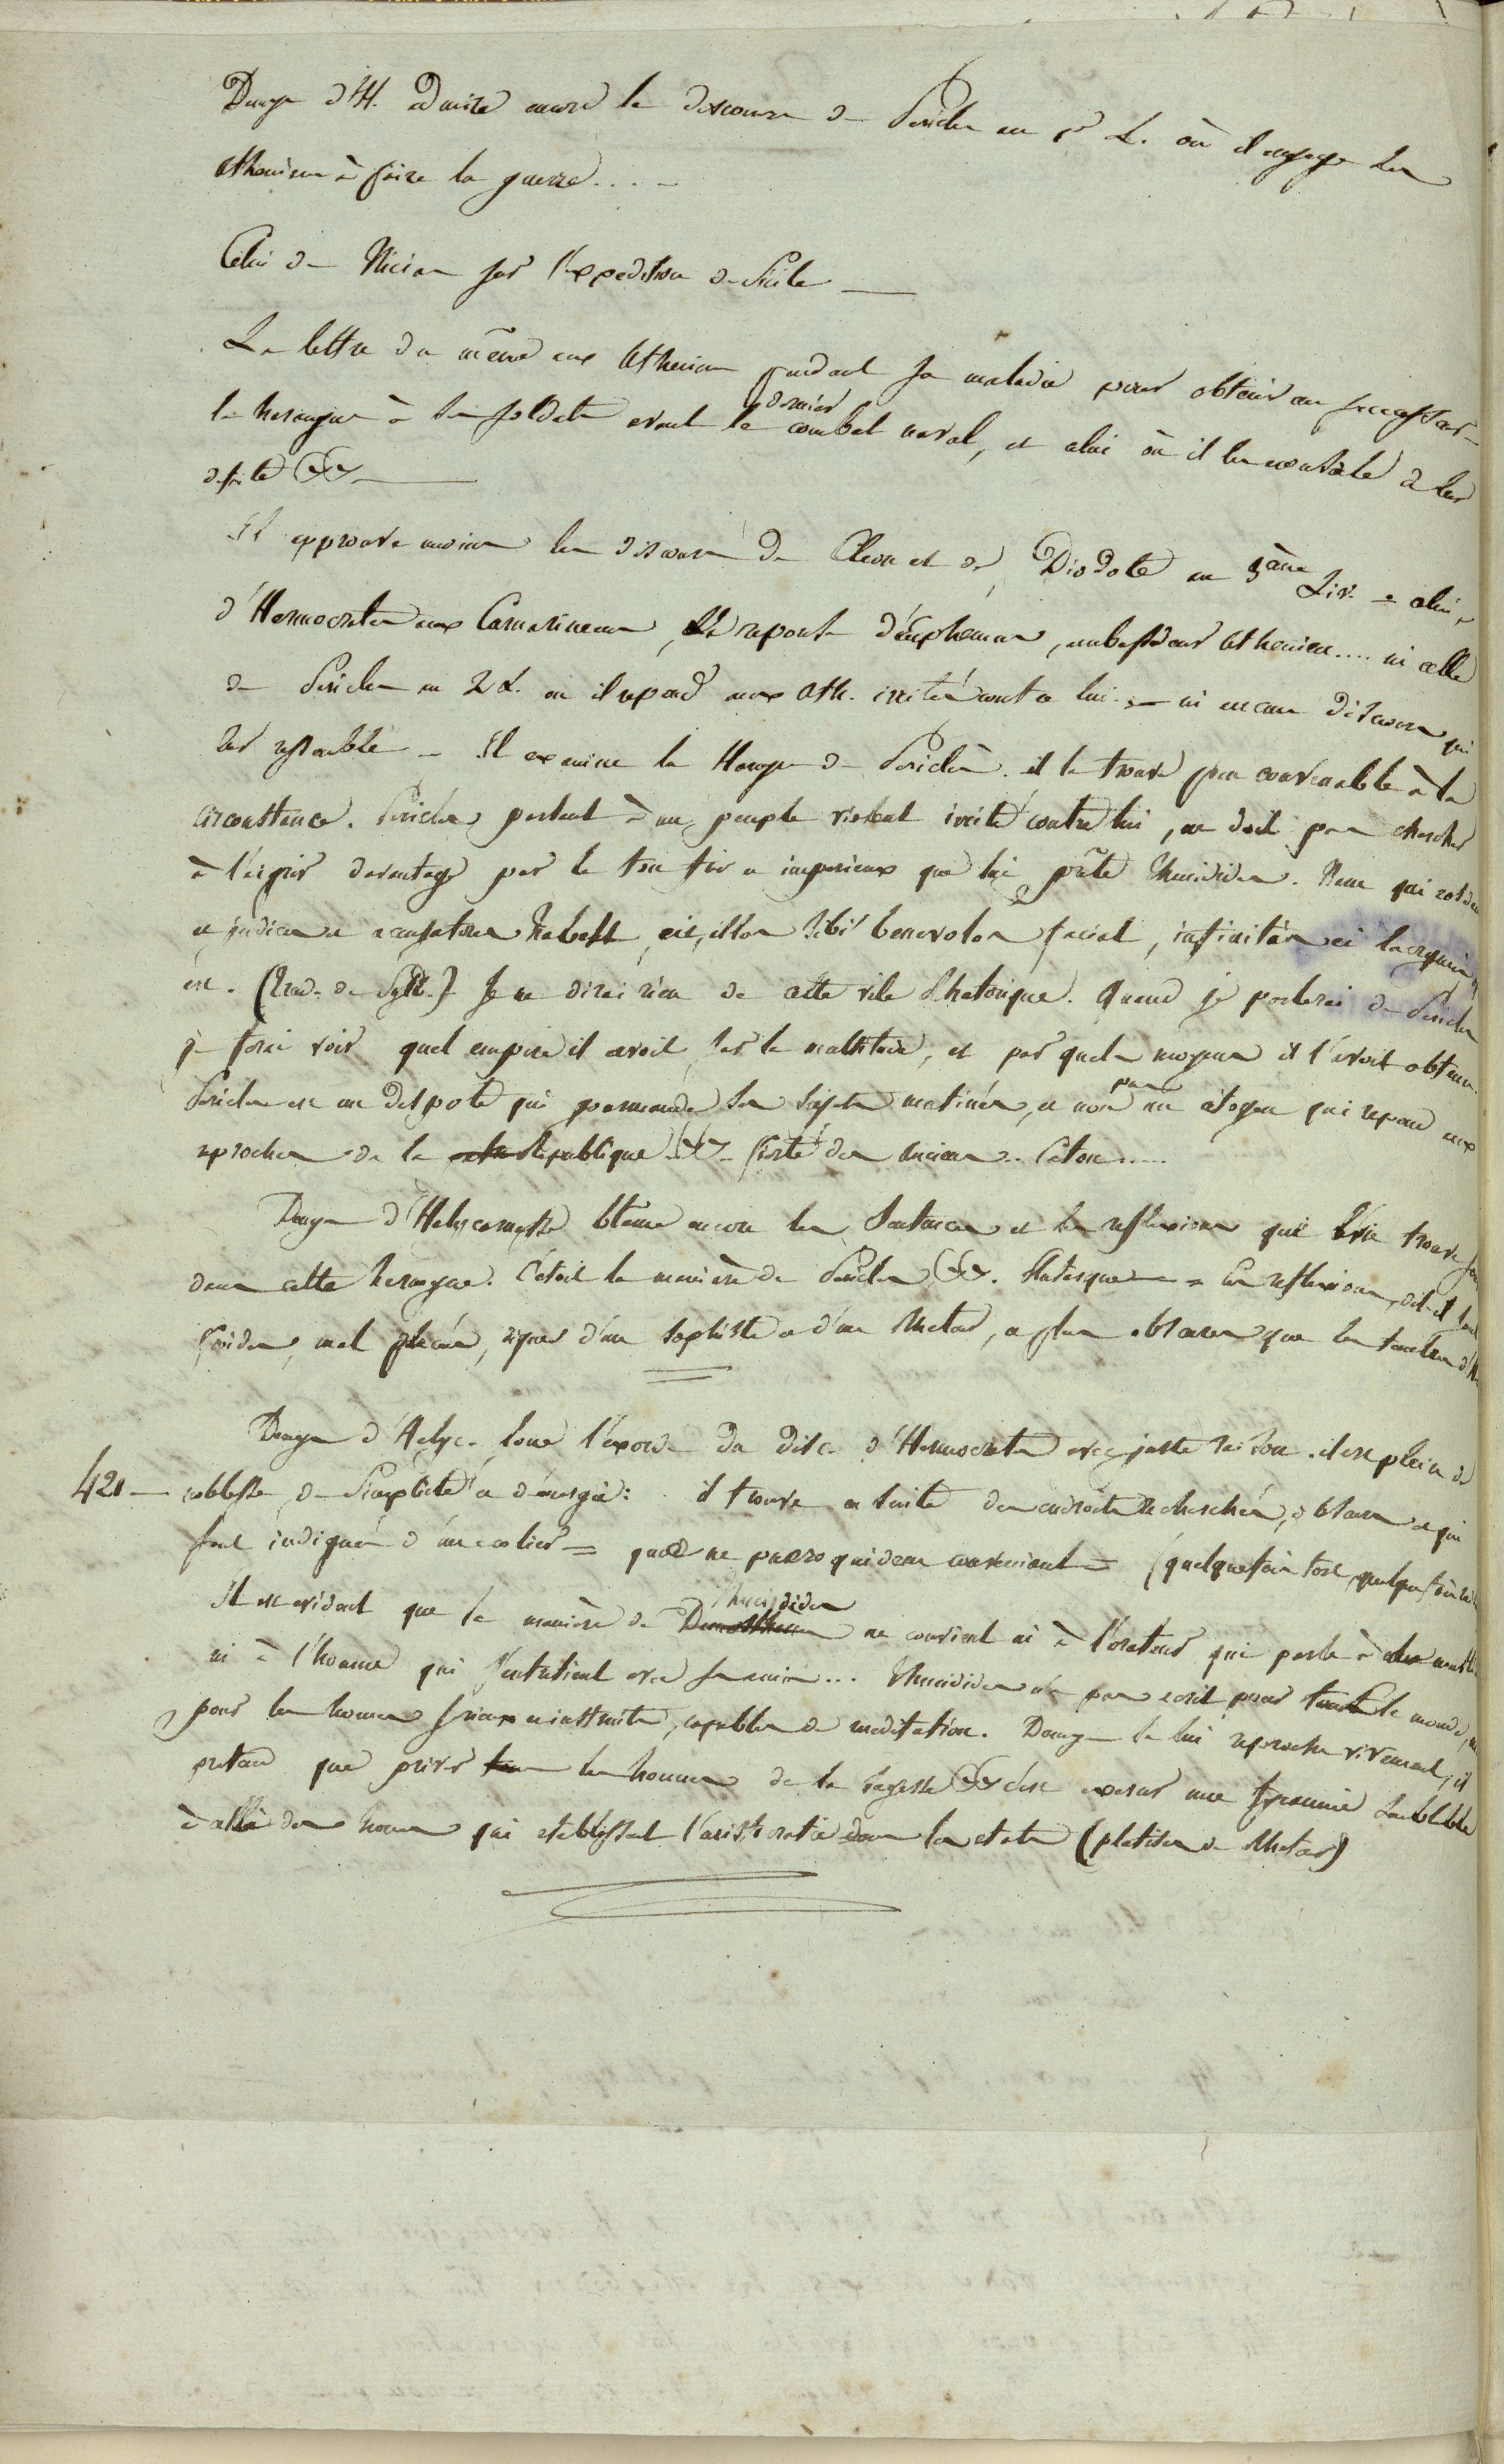 Denys d'H. admire encore le discours de Pericles au 1er L. où il engage les
athéniens à faire la guerre....
Celui de Nicias sur l'expédition de Sicile —
La lettre du même aux Athéniens pendant sa maladie pour obtenir un successeur —
la harangue à ses soldats avant le dernier combat naval, et celui où il les console de leur
defaite &&
Il approuve moins les discours de Cleon et de Diodote au 3ème Liv. = celui
d'Hermocrates aux Camarineens, la reponse d'éuphemus, ambassadeur athenien.... ni celle
de Pericles au 2 L. où il repond aux Ath. irrités contre lui. — ni aucun discours qui
leur ressemble — Il examine la Harangue de Periclès. il la trouve peu convenable à la
circonstance. Pericles parlant à un peuple violent irrité contre lui, ne doit pas chercher
à l'aigrir davantage par le ton fier et imperieux que lui prête Thucidides. Nam qui eosdem
et judices et accusatores habebat, nisi illos sibi benevolos faciat,
est. (Trad. de Sylb.) Je ne dirai rien de cette vile Rhetorique. Quand je parlerai de Pericles
je ferai voir quel empire il avoit sur la multitude, et par quels moyens il l'avoit obtenu.
Pericles est un despote qui gourmande ses sujets mutinés, et non pas un citoyen qui repond aux
reproches de la Republique && fierté des anciens.. Caton.....
Denys d'Halycarnasse blâme encore les sentences et les reflexions que l'on trouve
dans cette harangue. C'étoit la manière de Pericles &&. Plutarque — = Ces reflexions, dit-il sont
froides, mal placées, dignes d'un sophiste et d'un Rheteur, et plus obscures que les tenebres d'H
Denys d'Halyc. loue l'exorde du disc. d'Hermocrates avec juste raison. il est plein de
420 — noblesse, de simplicité et d'énergie: il trouve ensuite des endroits recherchés, obscurs et qui
sont indignes d'un ecolier = quae ne puero quidem conveniant = (quelquefois
Il est evident que la manière de Thucydides ne convient ni à l'orateur qui parle à
ni à l'homme qui s'entretient avec ses amis... Thucidides n'a pas ecrit pour tout le monde, mais
pour les hommes serieux et instruits, capables de meditation. Denys le lui reproche vivement, il
pretend que priver les hommes de la sagesse && c'est exercer une tyrannie semblable
à celle des hommes qui etablissent l'aristocratie dans les etats (platitude de Rheteur)